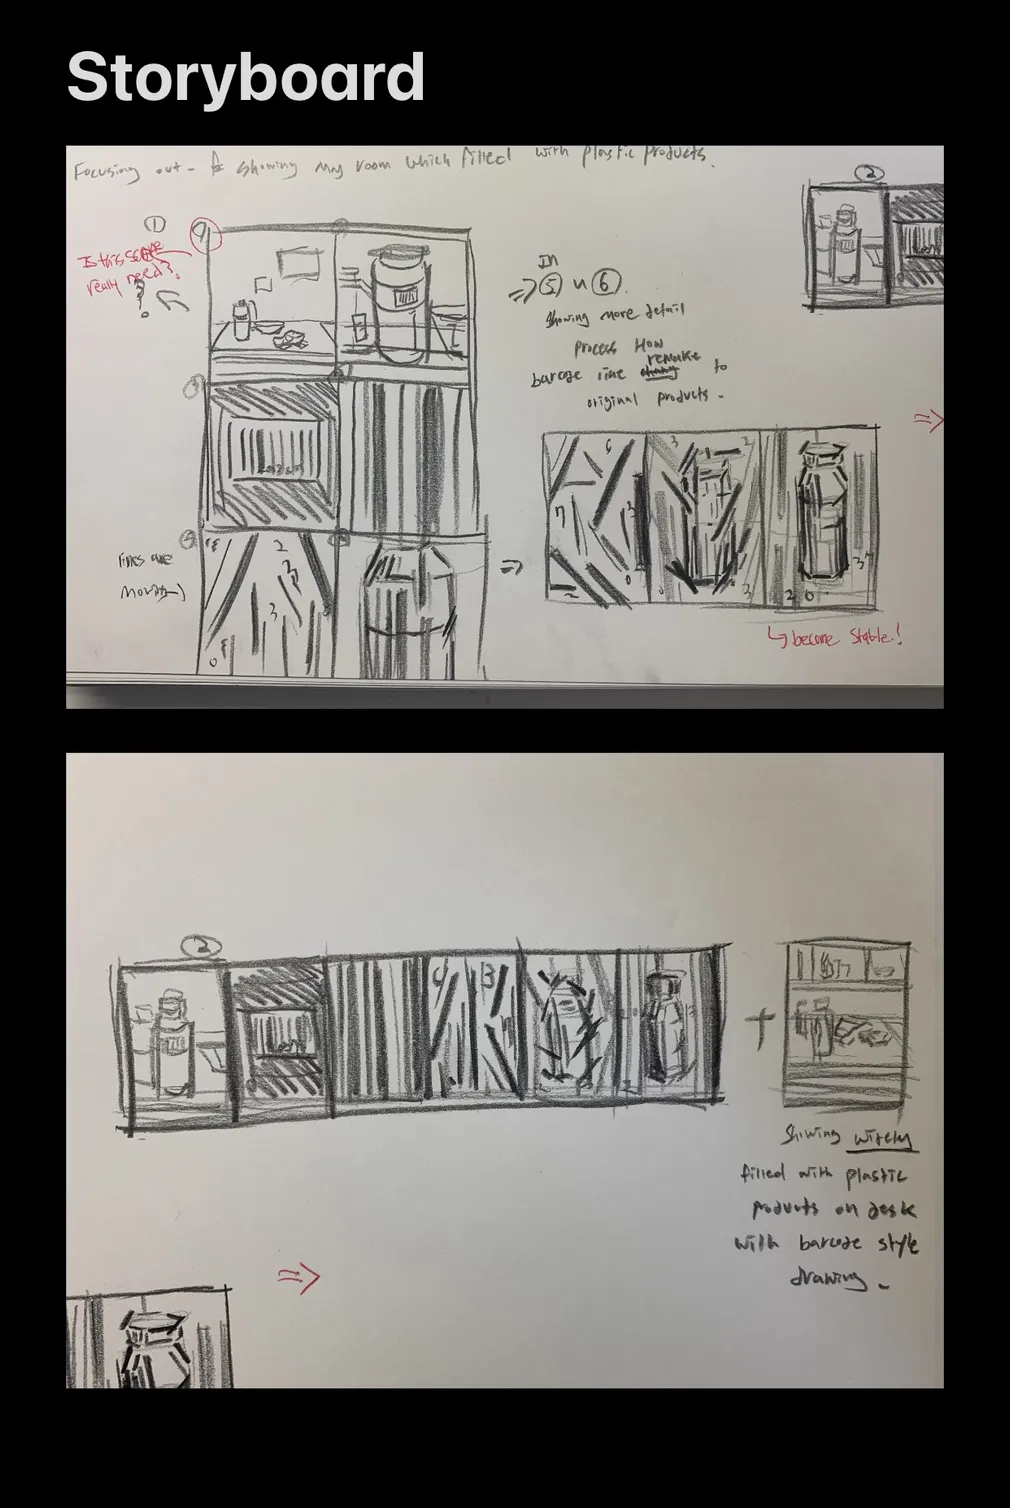 Storyboard
Focusing out - showing my room which filled with plastic products.
①
②
Is this scene
really need?
In
⇒ ⑤ ⑥
Showing more detail
process How
barcode line remake to
original products.
⇒
lines are
⇒
become stable!
②
+
filled with plastic
products on desk
with barcode style
drawing.
⇒